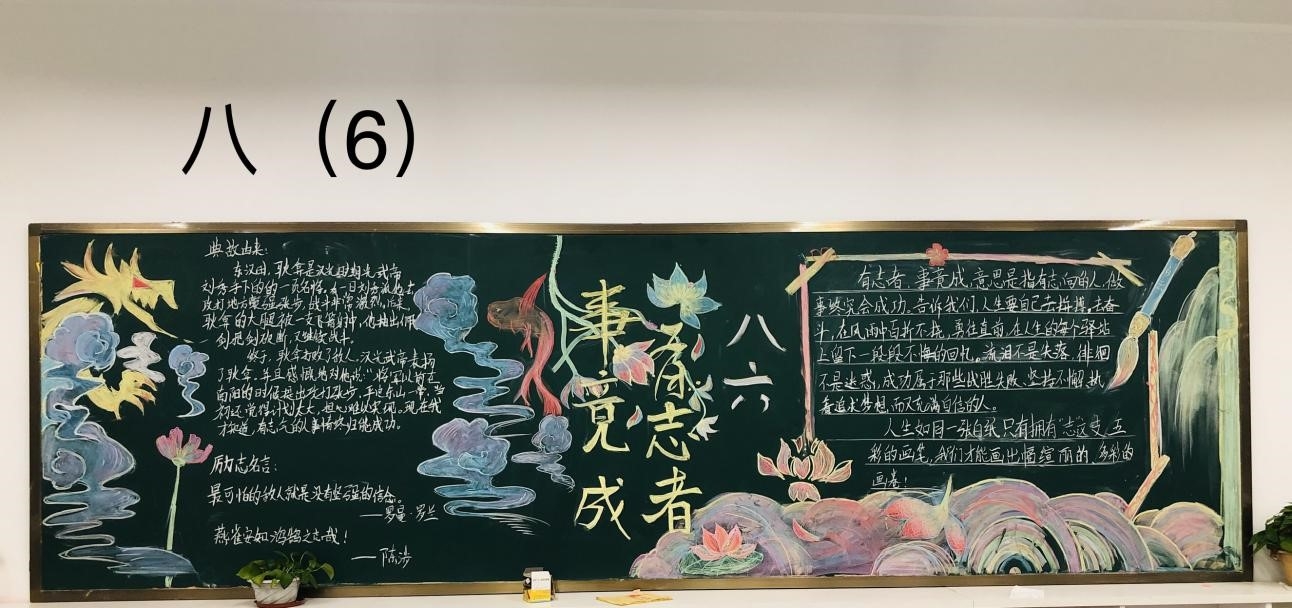 八（6）
典故由来：
东汉时，耿弇是汉光武帝
刘秀手下的的一员名将，有一日刘秀派他去
攻打地方豪强张步，战斗非常激烈。后来
耿弇的大腿被一支飞箭射中，他抽出佩
剑把剑砍断，又继续战斗。
终于，耿弇打败了敌人。汉光武帝表扬
了耿弇，并且感慨地对他说："将军以前在
南阳的时候提出攻打张步，平定东山一带，当
初还觉得计划太大，担心难以实现。现在我
才知道，有志气的人事情终归能成功。
励志名言：
最可怕的敌人就是没有坚强的信念。
——罗曼·罗兰
燕雀安知鸿鹄之志哉！
——陈涉
有志者
事竟成
八六
有志者，事竟成，意思是指有志向的人，做
事终究会成功。告诉我们，人生要自己去拼搏，去奋
斗，在风雨中百折不挠，勇往直前，在人生的每个驿站
上留下一段段不悔的回忆。流泪不是失落，徘徊
不是迷惑，成功属于那些战胜失败，坚持不懈，执
着追求梦想，而又充满自信的人。
人生如同一张白纸，只有拥有"志"这支五
彩的画笔，我们才能画出幅绚丽的，多彩的
画卷！